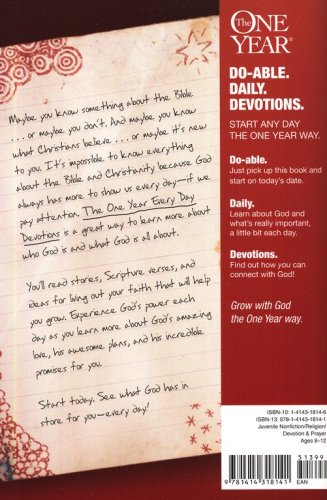 Maybe you know something about the Bible
. . . or maybe you don't. And maybe you know
what Christians believe . . . or maybe it's new
to you. It's impossible to know everything
about the Bible and Christianity because God
always has more to show us every day—if we
pay attention. The One Year Every Day
Devotions is a great way to learn more about
who God is and what God is all about.
You'll read stories, Scripture verses, and
ideas for living out your faith that will help
you grow. Experience God's power each
day as you learn more about God's amazing
love, his awesome plans, and his incredible
promises for you.
Start today. See what God has in
store for you—every day!
The ONE
YEAR®
DO-ABLE.
DAILY.
DEVOTIONS.
START ANY DAY
THE ONE YEAR WAY.
Do-able.
Just pick up this book and
start on today's date.
Daily.
Learn about God and
what's really important,
a little bit each day.
Devotions.
Find out how you can
connect with God!
Grow with God
the One Year way.
ISBN-10: 1-4143-1814-6
ISBN-13: 978-1-4143-1814-1
Juvenile Nonfiction/Religion/
Devotion & Prayer
Ages 8–12
51399
9 781414 318141 EAN